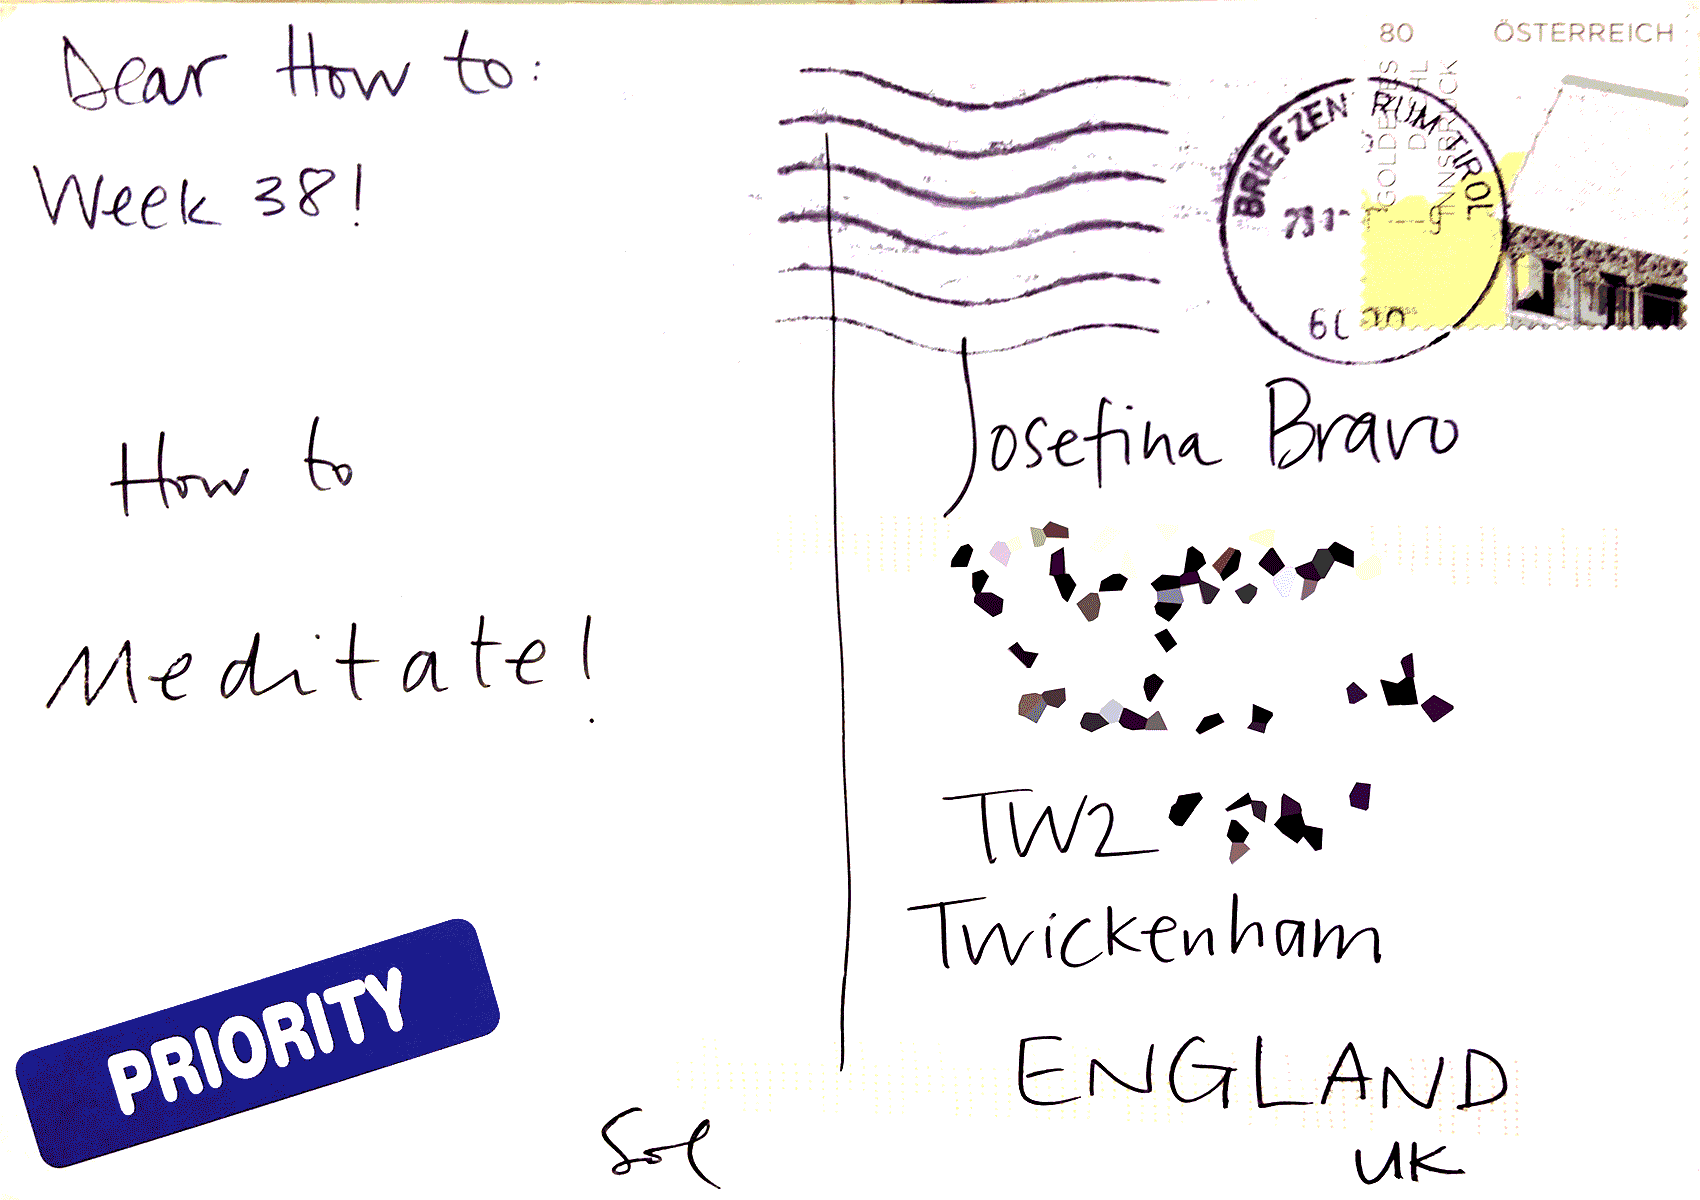 Dear How to:
Week 38!
How to
Meditate!
PRIORITY
Sol
80 ÖSTERREICH
GOLDENES
DACHL
INNSBRUCK
BRIEFZENTRUM TIROL
Josefina Bravo
TW2
Twickenham
ENGLAND
UK